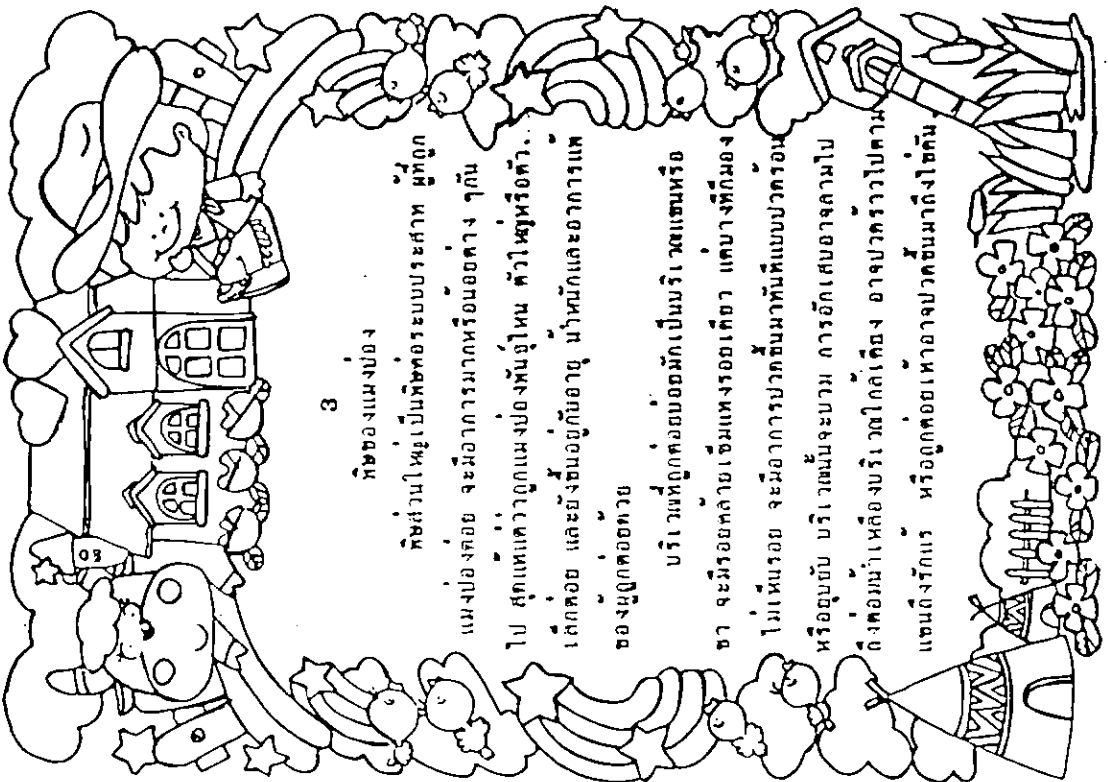 3
พิษของแมงป่อง
พิษส่วนใหญ่เป็นพิษต่อระบบประสาท ผู้ที่ถูก
แมงป่องต่อย จะมีอาการมากหรือน้อยต่าง ๆกัน
ไป สุดแท้แต่ว่าถูกแมงป่องพันธุ์ไหน ตัวใหญ่หรือตัว
เล็กต่อย และยังขึ้นอยู่กับอายุ น้ำหนักและอาการแพ้
ของผู้ถูกต่อยด้วย
บริเวณที่ถูกต่อยบ่อยมักเป็นบริเวณแขนหรือ
ขา จะมีรอยคล้ายเข็มแทงรอยเดียว แต่บางทีก็มอง
ไม่เห็นรอย จะมีอาการปวดขึ้นมาทันทีแบบปวดร้อน
หรือยุบยับ บริเวณนั้นจะบวม การอักเสบอาจลามไป
ถึงต่อมน้ำเหลืองบริเวณใกล้เคียง อาจปวดร้าวไปตาม
แขนถึงรักแร้ หรือถูกต่อยเท้าอาจปวดขึ้นมาถึงไข่ดัน